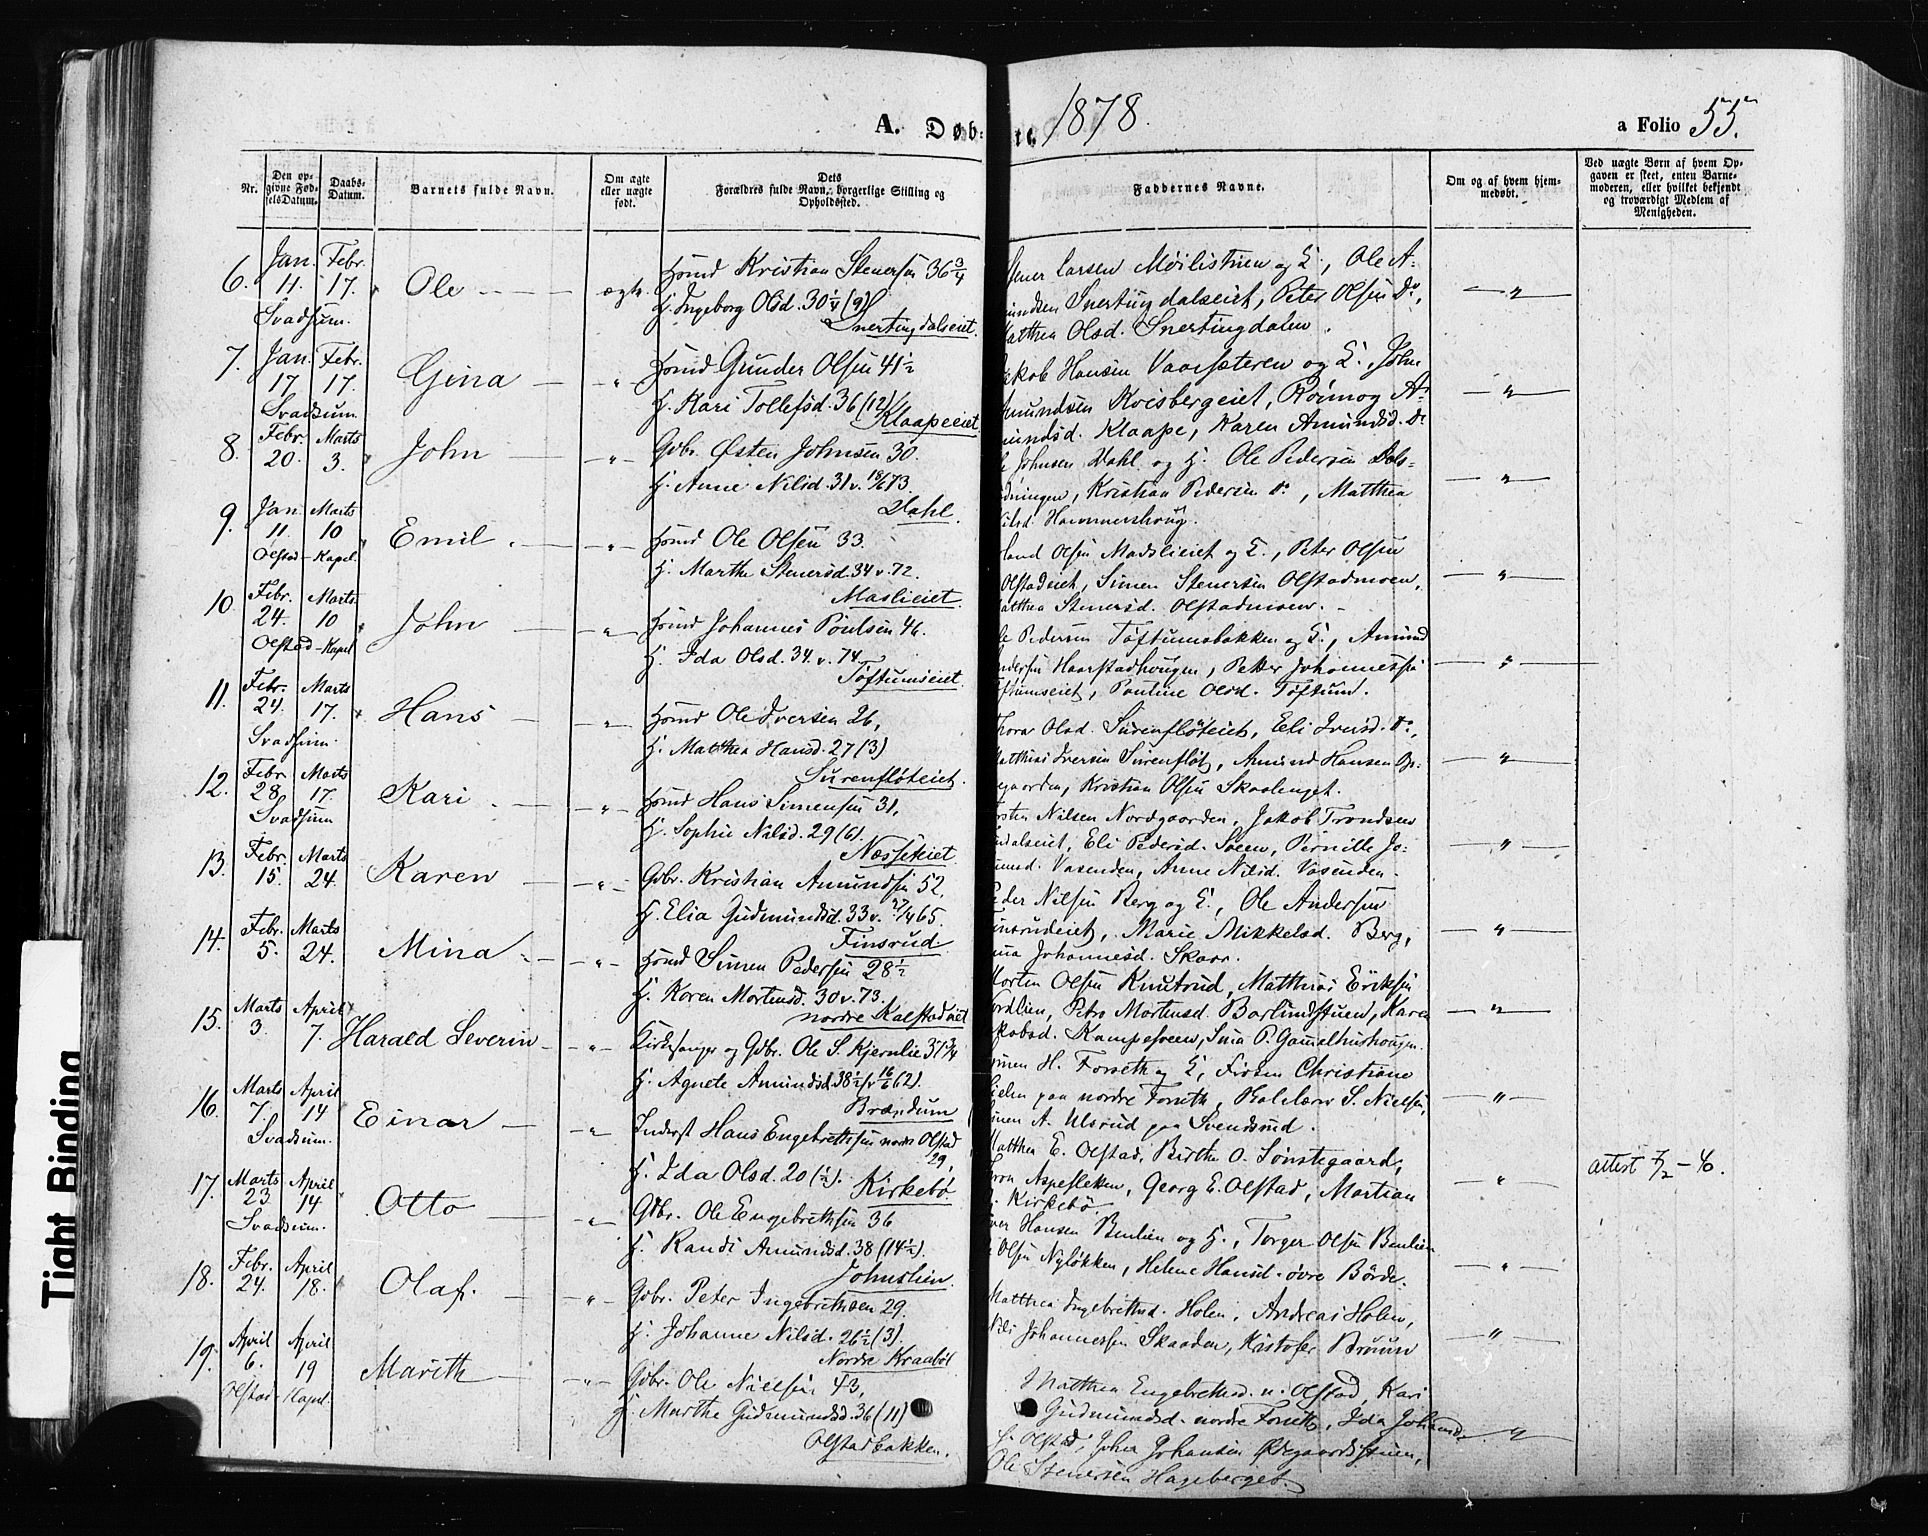 A. Døb-
te. 1878.
a Folio 55.
Nr.
Den op-
givne Fød-
selsDatum.
Daabs-
Datum.
Barnets fulde Navn.
Om ægte
eller uægte
født.
Dets
Forældres fulde Navn, borgerlige Stilling og
Opholdssted.
Faddernes Navne.
Om og af hvem hjem-
medøbt.
Ved uægte Børn af hvem Op-
gaven er skeet, enten Barne-
moderen, eller hvilket bekjendt
og troværdigt Medlem af
Menigheden.
6. Jan. 11. Febr. 17. Ole ægte. Hsmd Kristian Stenersen 36 3/4
H. Ingeborg Olsd. 30 1/4 (9)
Svadsum. Snertingdalseiet.
Larsen Møilistuen og H., Ole A-
mundsen Snertingdalseiet, Peter Olsen Do,
Matthea Olsd. Snertingdalen.
7. Jan. 17 Febr. 17. Gina " Hsmd Gunder Olsen 41 1/2
H. Kari Tollefsd. 36 (12)
Svadsum. Klaapeeiet
Jakob Hansen Vaarsæteren og H., John
Amundsen Kvisbergeiet, Rønnog A-
mundsd. Klaape, Karen Amundsd. Do
8. Febr. 20. Marts 3. John " Gdbr. Østen Johnsen 30.
H. Anne Nilsd. 31 v. 18/6 73.
Dahl.
Johnsen Dahl og H. Ole Pedersen Dals-
, Kristian Pedersen Do, Matthea
Nilsd. Hammershoug.
9. Jan 11. Marts 10 Emil " Hsmd Ole Olsen 33.
H. Marthe Stenersd. 34 v. 72.
Olstad-Kapel Maslieiet.
Olsen Madslieiet og H., Peter Olsen
Olstadeiet, Simen Stenersen Olstadmoen,
Matthea Stenersd. Olstadmoen.
10. Febr. 24. Marts 10 John " Hsmd Johannes Poulsen 46.
H. Ida Olsd. 34. v. 74.
Olstad-Kapel Toftumseiet.
Ole Pedersen Toftumsbakken og H., Amund
Andersen Haarstadhougen, Petter Johannessen
Toftumseiet, Pauline Olsd. Toftum.
11. Febr. 24. Marts 17. Hans " Hsmd Ole Iversen 26,
H. Matthea Hansd. 27 (3)
Svadsum. Surenfløteiet.
Thora Olsd. Surenfløteiet, Eli Iversd. Do,
Matthias Iversen Surenfløt, Amund Hansen
, Kristian Olsen Skaalenget.
12. Febr 28. Marts 17. Kari " Hsmd Hans Simensen 31,
H. Sophie Nilsd. 29 (6).
Svadsum Næsseteiet
Nilsen Nordgaarden, Jakob Trondsen
, Eli Pedersd. Søen, Pernille Jo-
Vasenden, Anne Nilsd. Vasenden.
13. Febr. 15. Marts 24. Karen " Gdbr. Kristian Amundsen 52,
H. Elia Gudmundsd. 33 v. 27/4 65.
Finsrud.
Peder Nilsen Berg og H., Ole Andersen
Finsrudeiet, Marie Mikkelsd. Berg,
Johannesd. Skaar.
14. Febr. 5. Marts 24. Mina " Hsmd Simen Pedersen 28 1/2
H. Karen Mortensd. 30 v. 73.
nordre Kalstadeiet
Morten Olsen Knutrud, Matthias Eriksen
Nordlien, Petra Mortensd. Baslundstuen, Karen
Jakobsd. Kampesveen, Sina P. Gammalhushougen.
15. Marts 3. April 7. Harald Severin " Kirkesanger og Gdbr. Ole S. Kjernlie 37 3/4
H. Agnete Amundsd. 38 1/2 v. 16/6 62).
Brændum
Simen H. Forseth og H, Frøken Christiane
paa nordre Forseth, S. Nielsen,
A. Ulsrud paa Svendsrud.
16. Marts 7. April 14 Einar " Inderst Hans Engebrethsen nordre Olstad
29,
H. Ida Olsd. 20 (1/2).
Svadsum. Kirkebø
Matthea E. Olstad, Birthe O. Lønstegaard,
Aspesletten, Georg E. Olstad, Martian
Kirkebø.
attest 7/2 - 40.
17. Marts 23 April 14 Otto " Gdbr. Ole Engebrethsen 36
H. Randi Amundsd. 38 (14 1/2).
Svadsum. Johnslien.
Iver Hansen Benlien og H., Torger Olsen Benlien
Olsen Nyløkken, Helene Hansd. øvre Børde.
18. Febr. 24. April 18. Olaf. " Gdbr. Peter Ingebrethsen 29
H. Johanne Nilsd. 26 1/2 (3).
Nordre Kraabøl
Matthea Ingebrethsd. Holen, Andreas Holen,
Nils Johannessen Skaaden, Kristofer Bruun
19. April 6. April 19 Marith " Gdbr. Ole Nielsen 43,
H. Marthe Gudmundsd. 36 (11)
Olstad-Kapel. Olstadbakken.
Matthea Engebrethsd. n. Olstad, Kari
Gudmundsd. nordre Forseth, Ida Johansd.
s. Olstad, Johan Johansen Ødegaardsstuen,
Ole Stenersen Hageberget.
Tight Binding